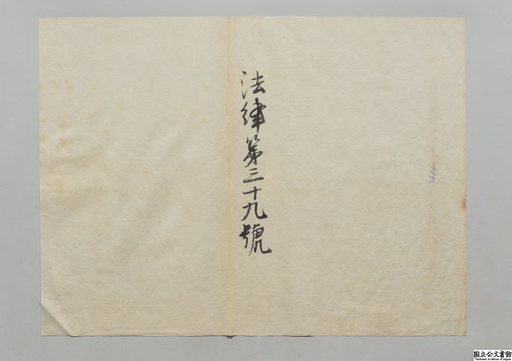 法律第三十九號
国立公文書館
National Archives of Japan